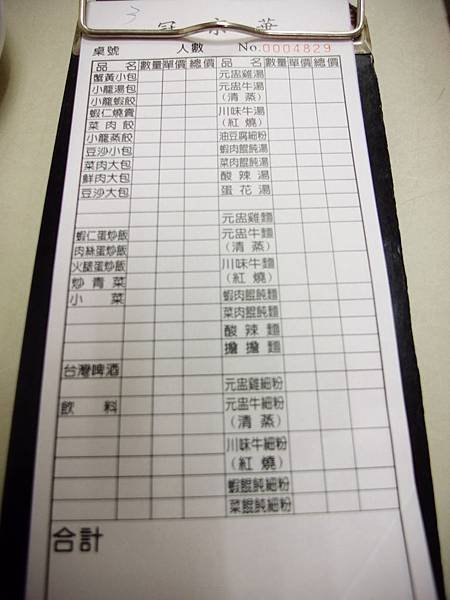 3
冠京華
桌號 人數 No.0004829
品名 數量 單價 總價 品名 數量 單價 總價
蟹黃小包 元盅雞湯
小龍湯包 元盅牛湯
小龍蝦餃 (清蒸)
蝦仁燒賣 川味牛湯
菜肉餃 (紅燒)
小龍蒸餃 油豆腐細粉
豆沙小包 蝦肉餛飩湯
菜肉大包 菜肉餛飩湯
鮮肉大包 酸辣湯
豆沙大包 蛋花湯
元盅雞麵
蝦仁蛋炒飯 元盅牛麵
肉絲蛋炒飯 (清蒸)
火腿蛋炒飯 川味牛麵
炒青菜 (紅燒)
小菜 蝦肉餛飩麵
菜肉餛飩麵
酸辣麵
擔擔麵
台灣啤酒
元盅雞細粉
飲料 元盅牛細粉
(清蒸)
川味牛細粉
(紅燒)
蝦餛飩細粉
菜餛飩細粉
合計